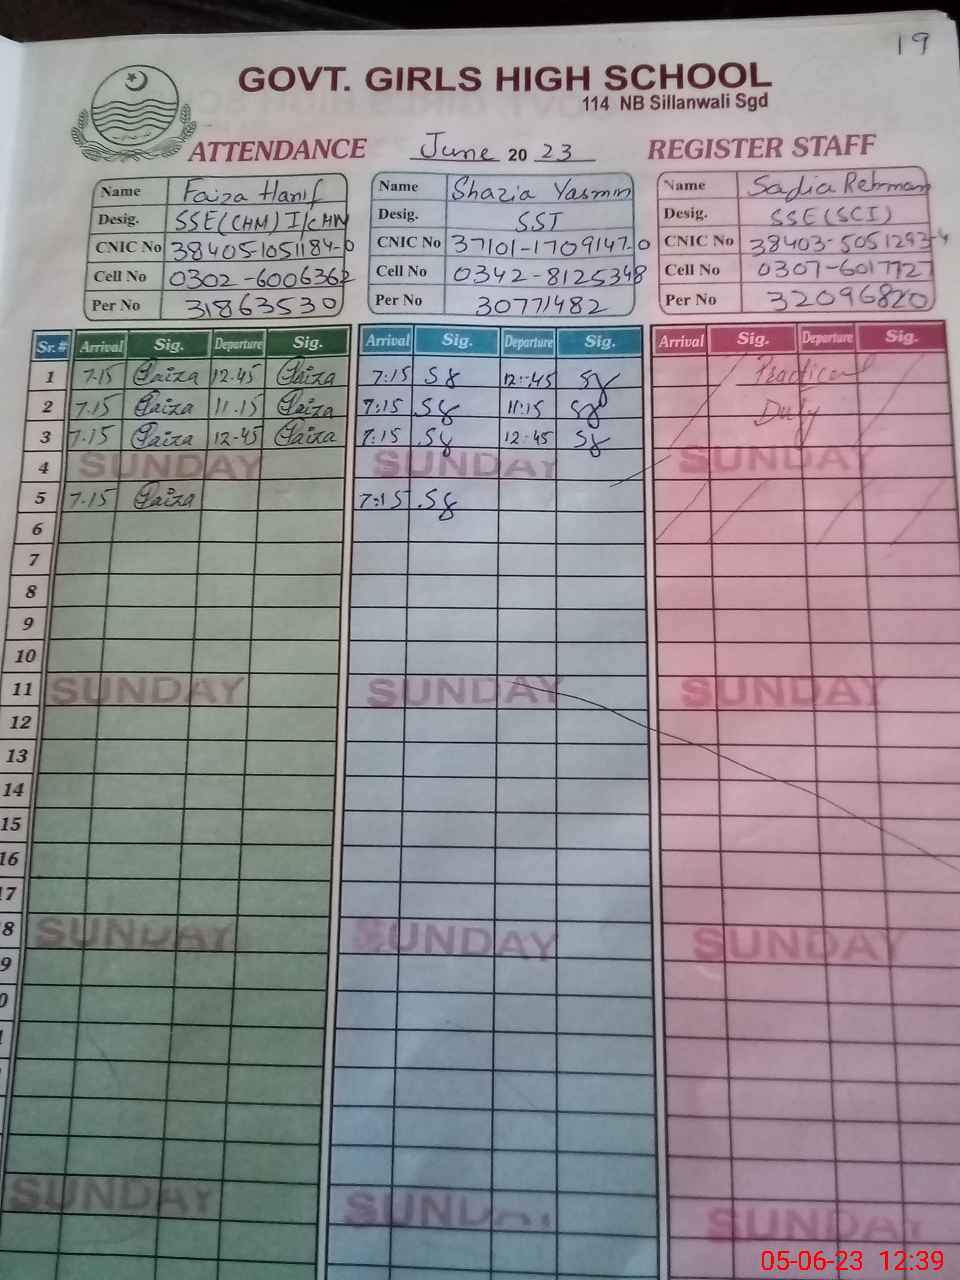 19
GOVT. GIRLS HIGH SCHOOL
114 NB Sillanwali Sgd
ATTENDANCE June 2023 REGISTER STAFF
Name Faiza Hanif Name Shazia Yasmin Name Sadia Rehman
Desig. SSE(CHM) I/CHM Desig. SST Desig. SSE(SCI)
CNIC No 38405-1051184-0 CNIC No 37101-1709147-0 CNIC No 38403-5051293-4
Cell No 0302-6006362 Cell No 0342-8125348 Cell No 0307-6017727
Per No 31863530 Per No 30771482 Per No 32096820
Sr.# Arrival Sig. Departure Sig. Arrival Sig. Departure Sig. Arrival Sig. Departure Sig.
1 7.15 Faiza 12.45 Faiza 7:15 Sy 12:45 Sy Practical
2 7.15 Faiza 11.15 Faiza 7:15 Sy 11:15 Sy Duty
3 7.15 Faiza 12-45 Faiza 7:15 Sy 12:45 Sy
4 SUNDAY SUNDAY SUNDAY
5 7.15 Faiza 7:15 Sy
6
7
8
9
10
11 SUNDAY SUNDAY SUNDAY
12
13
14
15
16
17
8 SUNDAY SUNDAY SUNDAY
9
0
SUNDAY SUNDAY SUNDAY
05-06-23 12:39